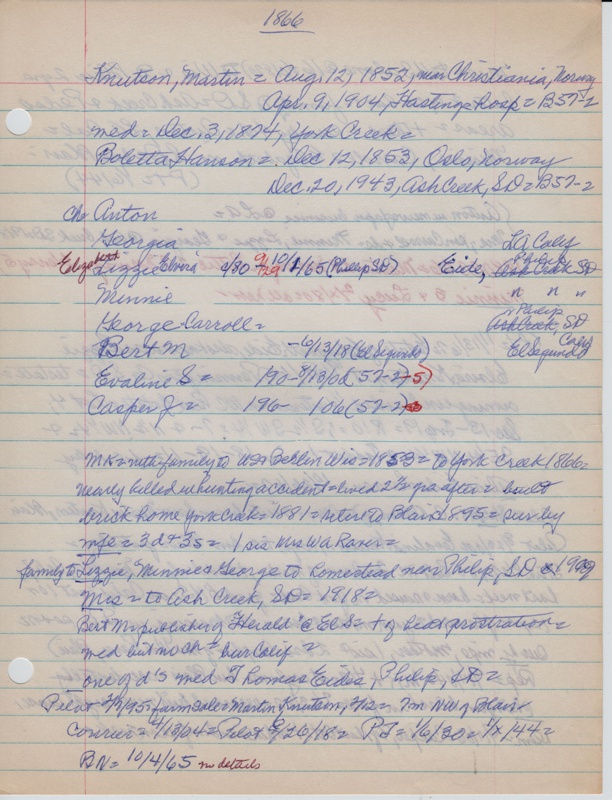 1866
Knutson, Martin = Aug. 12, 1852, near Christiania, Norway
Apr. 9, 1904, Hastings hosp = B57-2
med = Dec. 3, 1874, York Creek =
Boletta Hanson = Dec 12, 1853, Oslo, Norway
Dec. 20, 1943, Ash Creek, SD = B57-2
ch Anton
Georgia LA Calif
Elizabeth Lizzie Elvira c/80 9/29 65 (Philip SD) Eide, Ash Creek SD
Minnie " " "
George Carroll = Philip Ash Creek, SD
Bert M - 6/13/18 (El Segundo) El Segundo Calif
Evaline S = 190- 8/13/06 (57-2)-5)
Casper J = 196- 106 (57-2)
MK = with family to US Berlin Wis = 1853 = to York Creek 1866 =
nearly killed in hunting accident = lived 2½ yrs after = built
brick home York Creek = 1881 = retire to Blair 1895 = surv by
mfe = 3d + 3s = 1 sis Mrs WA Raxer =
family to Lizzie, Minnie & George to homestead near Philip, SD 1909
Mrs = to Ash Creek, SD = 1918 =
Bert M = publisher of Herald @ El S = + of heat prostration =
med but no ch = bur Calif =
one of d's med Thomas Eide, Philip, SD =
Pilot 2/7/95 = farm sale Martin Knutson, 2/12 = 7m NW of Blair
Courier = 4/13/04 = Pilot 9/26/18 = PT = 1/6/20 = 1/x/44 =
BN = 10/4/65 no details